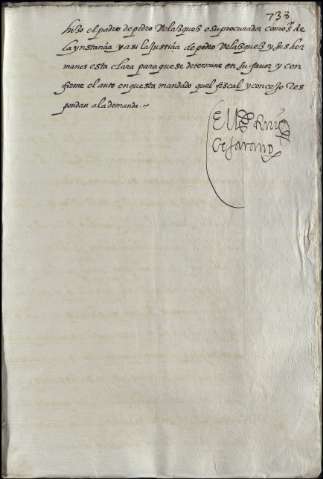 738
hizo el padre de pedro Velasquez e su procurador como s. de
la ynstançia y asi la justiçia de pedro Velasquez y sus her
manos esta clara para que se determine en su favor y con
firme el auto en questa mandado quel fiscal y conçejo Res
pondan a la demanda.
El L.do Ruiz
Bejarano